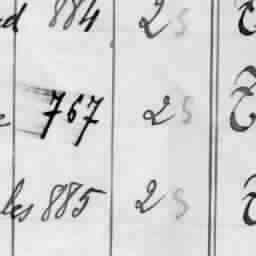 884 25
767 25
les 885 25